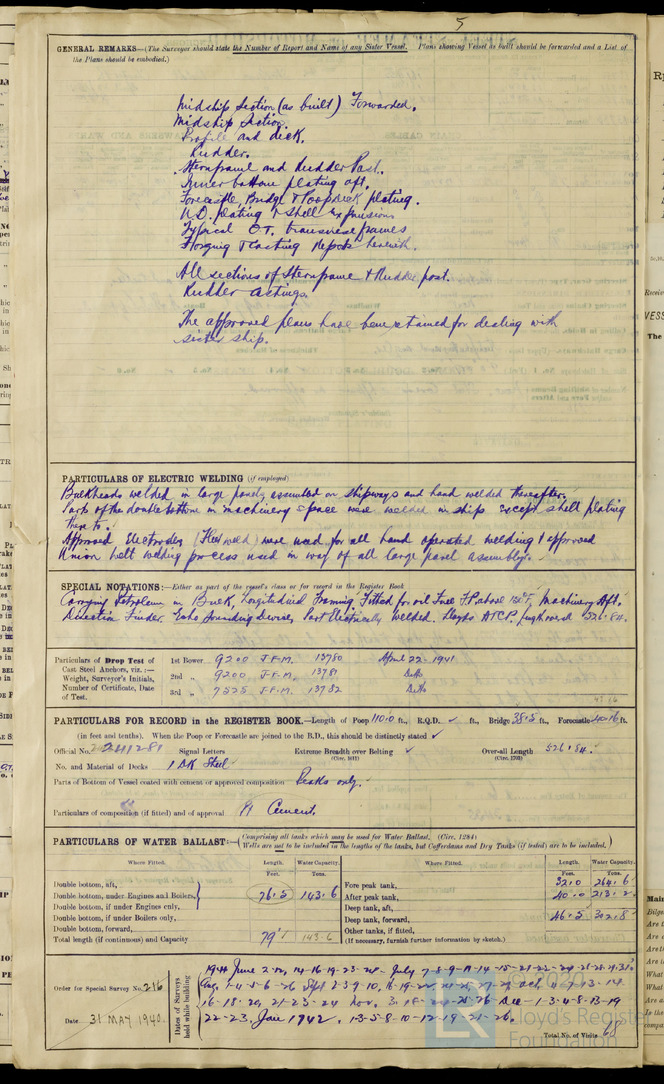 5
GENERAL REMARKS—(The Surveyor should state the Number of Report and Name of any Sister Vessel. Plans showing Vessel as built should be forwarded and a List of
the Plans should be embodied.)
Midship Section (as built) Forwarded.
Midship Section.
Profile and deck.
Rudder.
Sternframe and Rudder Post.
Inner bottom plating aft.
Forecastle, Bridge & Poop deck plating.
U.D. plating & Shell Expansion
Typical O.T. transverse frames
Forging & Casting Reports herewith.
All sections of Sternframe & Rudder post.
Rudder castings.
The approved plans have been retained for dealing with
sister ship.
PARTICULARS OF ELECTRIC WELDING (if employed)
Bulkheads welded in large panels, assembled on shipways and hand welded thereafter.
Parts of the double bottom in machinery space were welded in ship except shell plating
thereto.
Approved Electrodes (Fleetweld) were used for all hand operated welding & approved
Union melt welding process used in way of all large panel assemblys.
SPECIAL NOTATIONS:—Either as part of the vessel's class or for record in the Register Book
Carrying Petroleum in Bulk, Longitudinal Framing, Fitted for oil Fuel F.P. above 150°F, Machinery Aft.
Direction Finder. Echo Sounding Device, Part Electrically Welded. Lloyds A&CP. Length overall 526.84.
Particulars of Drop Test of
Cast Steel Anchors, viz.:—
Weight, Surveyor's Initials,
Number of Certificate, Date
of Test.
1st Bower 9200 J.F.M. 13780 April 22-1941
2nd " 9200 J.F.M. 13781 Ditto
3rd " 7525 J.F.M. 13782 Ditto
PARTICULARS FOR RECORD in the REGISTER BOOK.—Length of Poop 110.0 ft., R.Q.D. ✓ ft., Bridge 38.5 ft., Forecastle ft.
(in feet and tenths). When the Poop or Forecastle are joined to the B.D., this should be distinctly stated ✓
Official No. 241281 Signal Letters Extreme Breadth over Belting ✓ Over-all Length 526.84.
(Circ. 1611) (Circ. 1703)
No. and Material of Decks 1 DK Steel
Parts of Bottom of Vessel coated with cement or approved composition Peaks only.
Particulars of composition (if fitted) and of approval Cement.
PARTICULARS OF WATER BALLAST:—(Comprising all tanks which may be used for Water Ballast. (Circ. 1284)
Wells are not to be included in the lengths of the tanks, but Cofferdams and Dry Tanks (if tested) are to be included.)
Where Fitted. Length. Water Capacity. Where Fitted. Length. Water Capacity.
Feet. Tons. Feet. Tons.
Double bottom, aft,
Double bottom, under Engines and Boilers, 76.5 143.6
Double bottom, if under Engines only,
Double bottom, if under Boilers only,
Double bottom, forward,
Total length (if continuous) and Capacity 79'1 143.6
Fore peak tank, 32.0 264.6
After peak tank, 40.0 213.2
Deep tank, aft,
Deep tank, forward, 46.5 342.8
Other tanks, if fitted,
(If necessary, furnish further information by sketch.)
Order for Special Survey No. 216
Date 31 MAY 1940.
Dates of Surveys
held while building
1941 June 2-12-14-16-19-23-24- July 7-8-9-11-14-15-21-22-24-25-28-29-31
Aug. 1-4-5-6-26 Sept 2-3-9-10-16-19-22-24-25-27-29 Oct 4-7-13-14
16-18-20, 21-23-24 Nov. 3-18-20-25-26 Dec-1-3-4-8-13-19
22-23. Jan 1942. 1-3-5-8-10-12-19-21-26.
Total No. of Visits
Lloyd's Register
Foundation